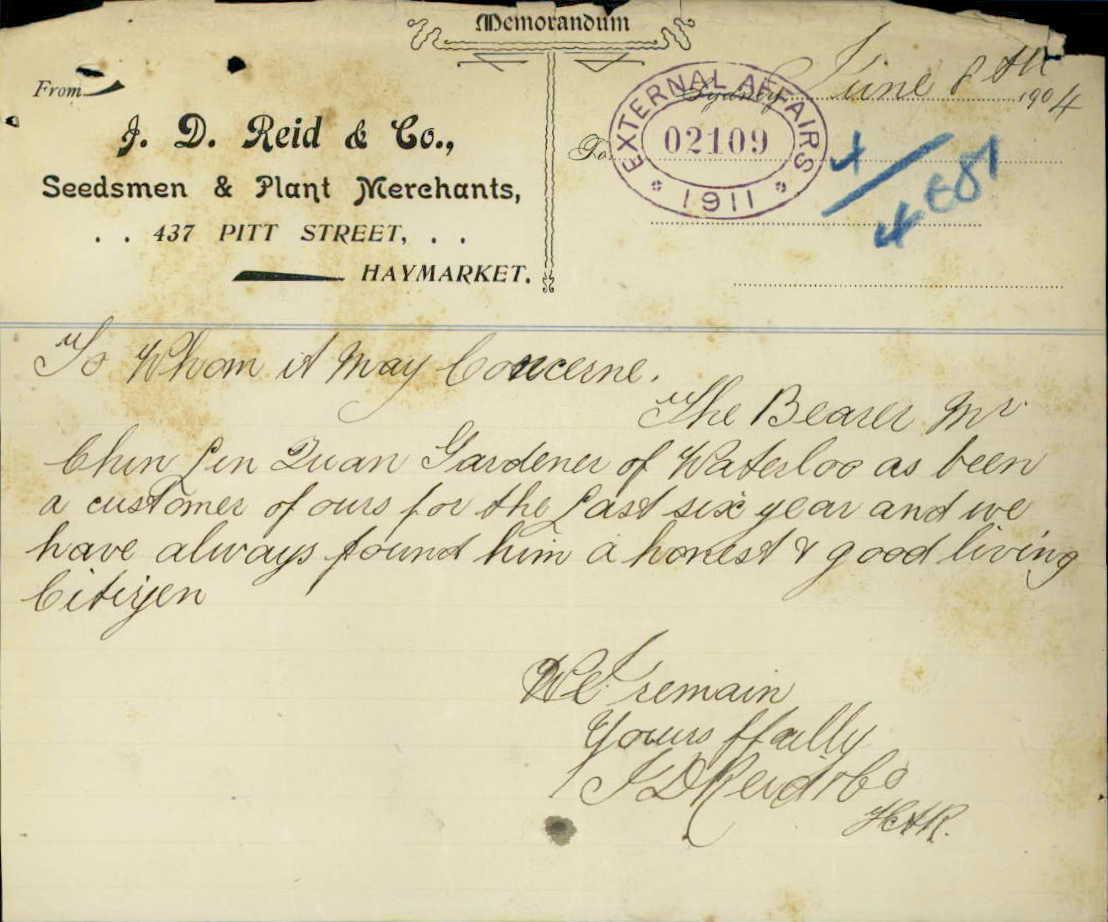 Memorandum
From
J. D. Reid & Co.,
Seedsmen & Plant Merchants,
. . 437 PITT STREET, . .
HAYMARKET.
Sydney June 8th 1904
To
EXTERNAL AFFAIRS
02109
1911
4/4681
To Whom it May Concerne.
The Bearer Mr
Chin Lin Quan Gardener of Waterloo as been
a customer of ours for the Last six year and we
have always found him a honest & good living
Citizen
We remain
Yours ffailly
J D Reid & Co
HAR.